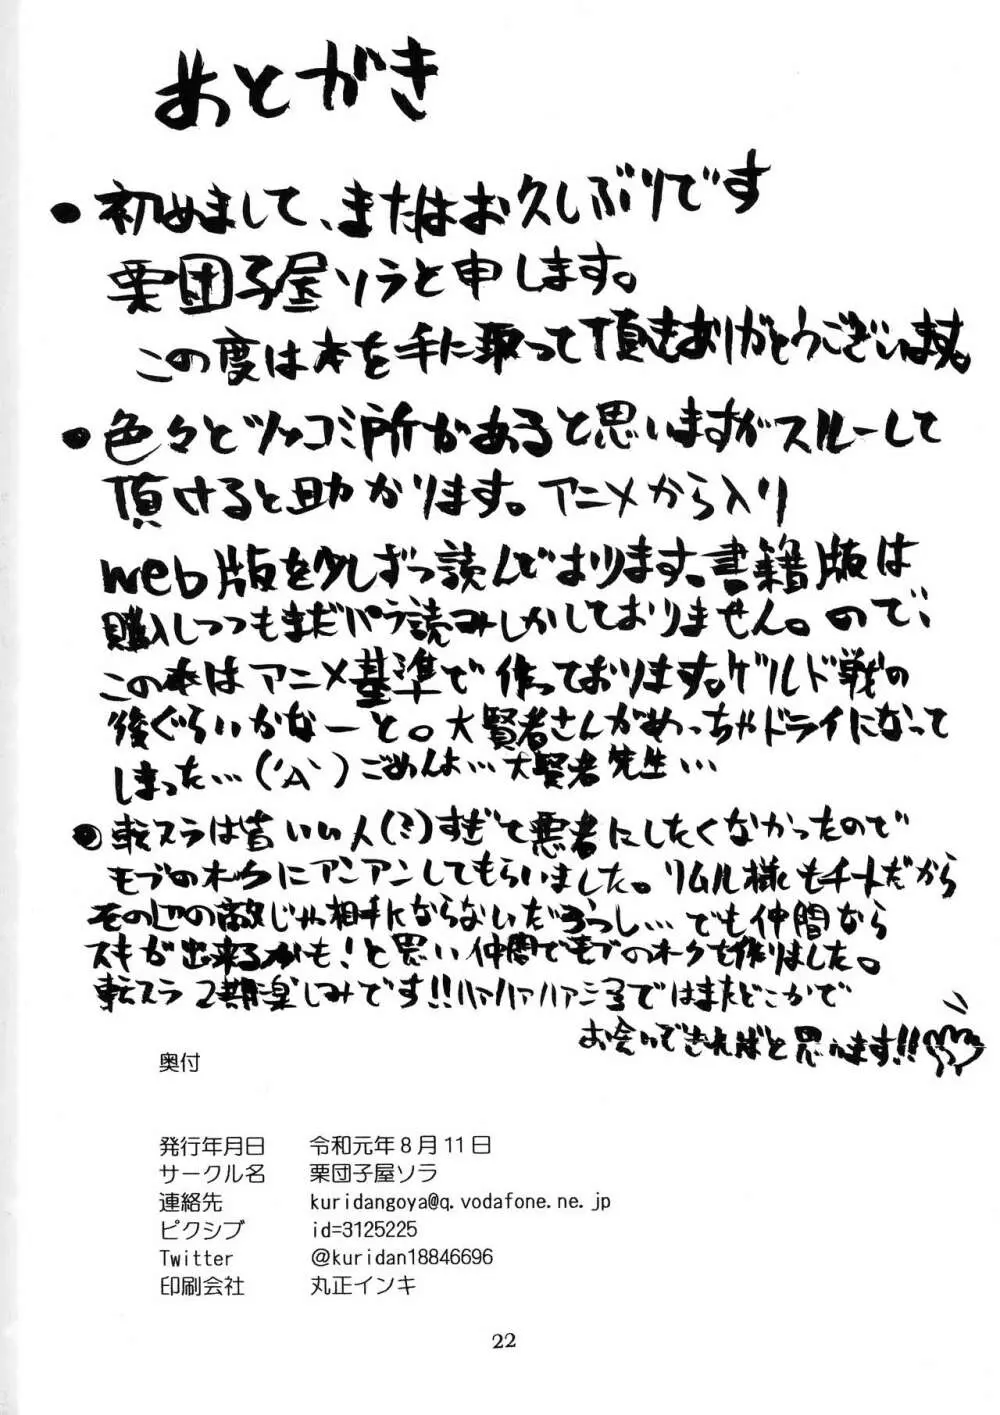 あとがき
・初めまして、またはお久しぶりです
栗団子屋ソラと申します。
この度は本を手に取って頂きありがとうございます。
・色々とツッコミ所があると思いますがスルーして
頂けると助かります。アニメから入り
web版を少しずつ読んでおります。書籍版は
購入しつつもまだパラ読みしかしておりません。ので、
この本はアニメ基準で作っております。ゲルド戦の
後ぐらいかなーと。大賢者さんがめっちゃドライになって
しまった…('A`)ごめんよ…大賢者先生…
・転スラは皆いい人(?)すぎて悪者にしたくなかったので
モブのオークにアンアンしてもらいました。リムル様もチートだから
その辺の敵じゃ相手にならないだろうし…でも仲間なら
スキが出来るかも!と思い仲間でモブのオークを作りました。
転スラ2期楽しみです!!ハァハァハァ ではまたどこかで
お会いできればと思います!!
奥付
発行年月日 令和元年8月11日
サークル名 栗団子屋ソラ
連絡先 kuridangoya@q.vodafone.ne.jp
ピクシブ id=3125225
Twitter @kuridan18846696
印刷会社 丸正インキ
22